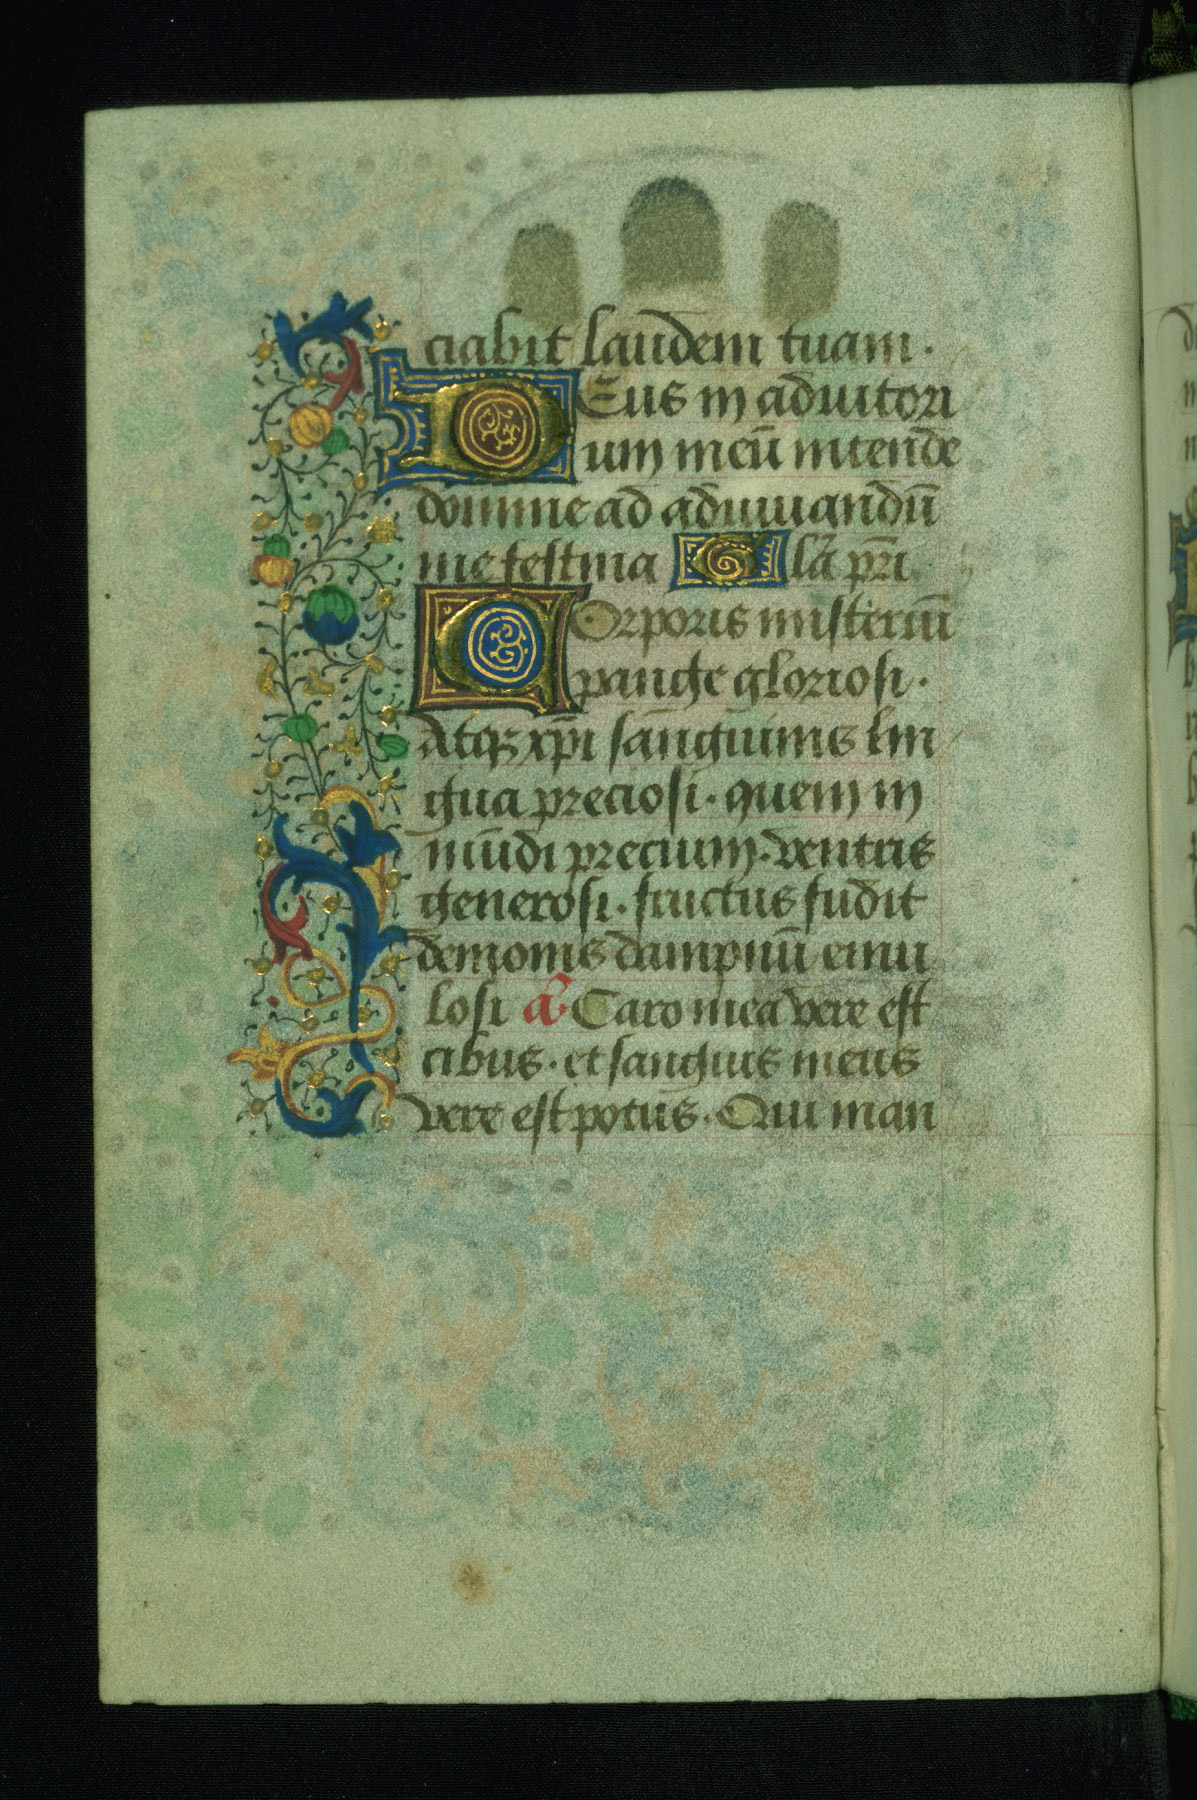 ciabit laudem tuam.
Deus in adiutori
um meū intende
domine ad adiuuandū
me festina Glā pr̄i
Corporis misteriū
pange gloriosi.
Atqꝫ xp̄i sanguinis lin
gua preciosi. quem in
mūdi precium. ventris
generosi. fructus fudit
demonis dampnū emu
losi añ Caro mea vere est
cibus. et sanguis meus
vere est potus. Qui man